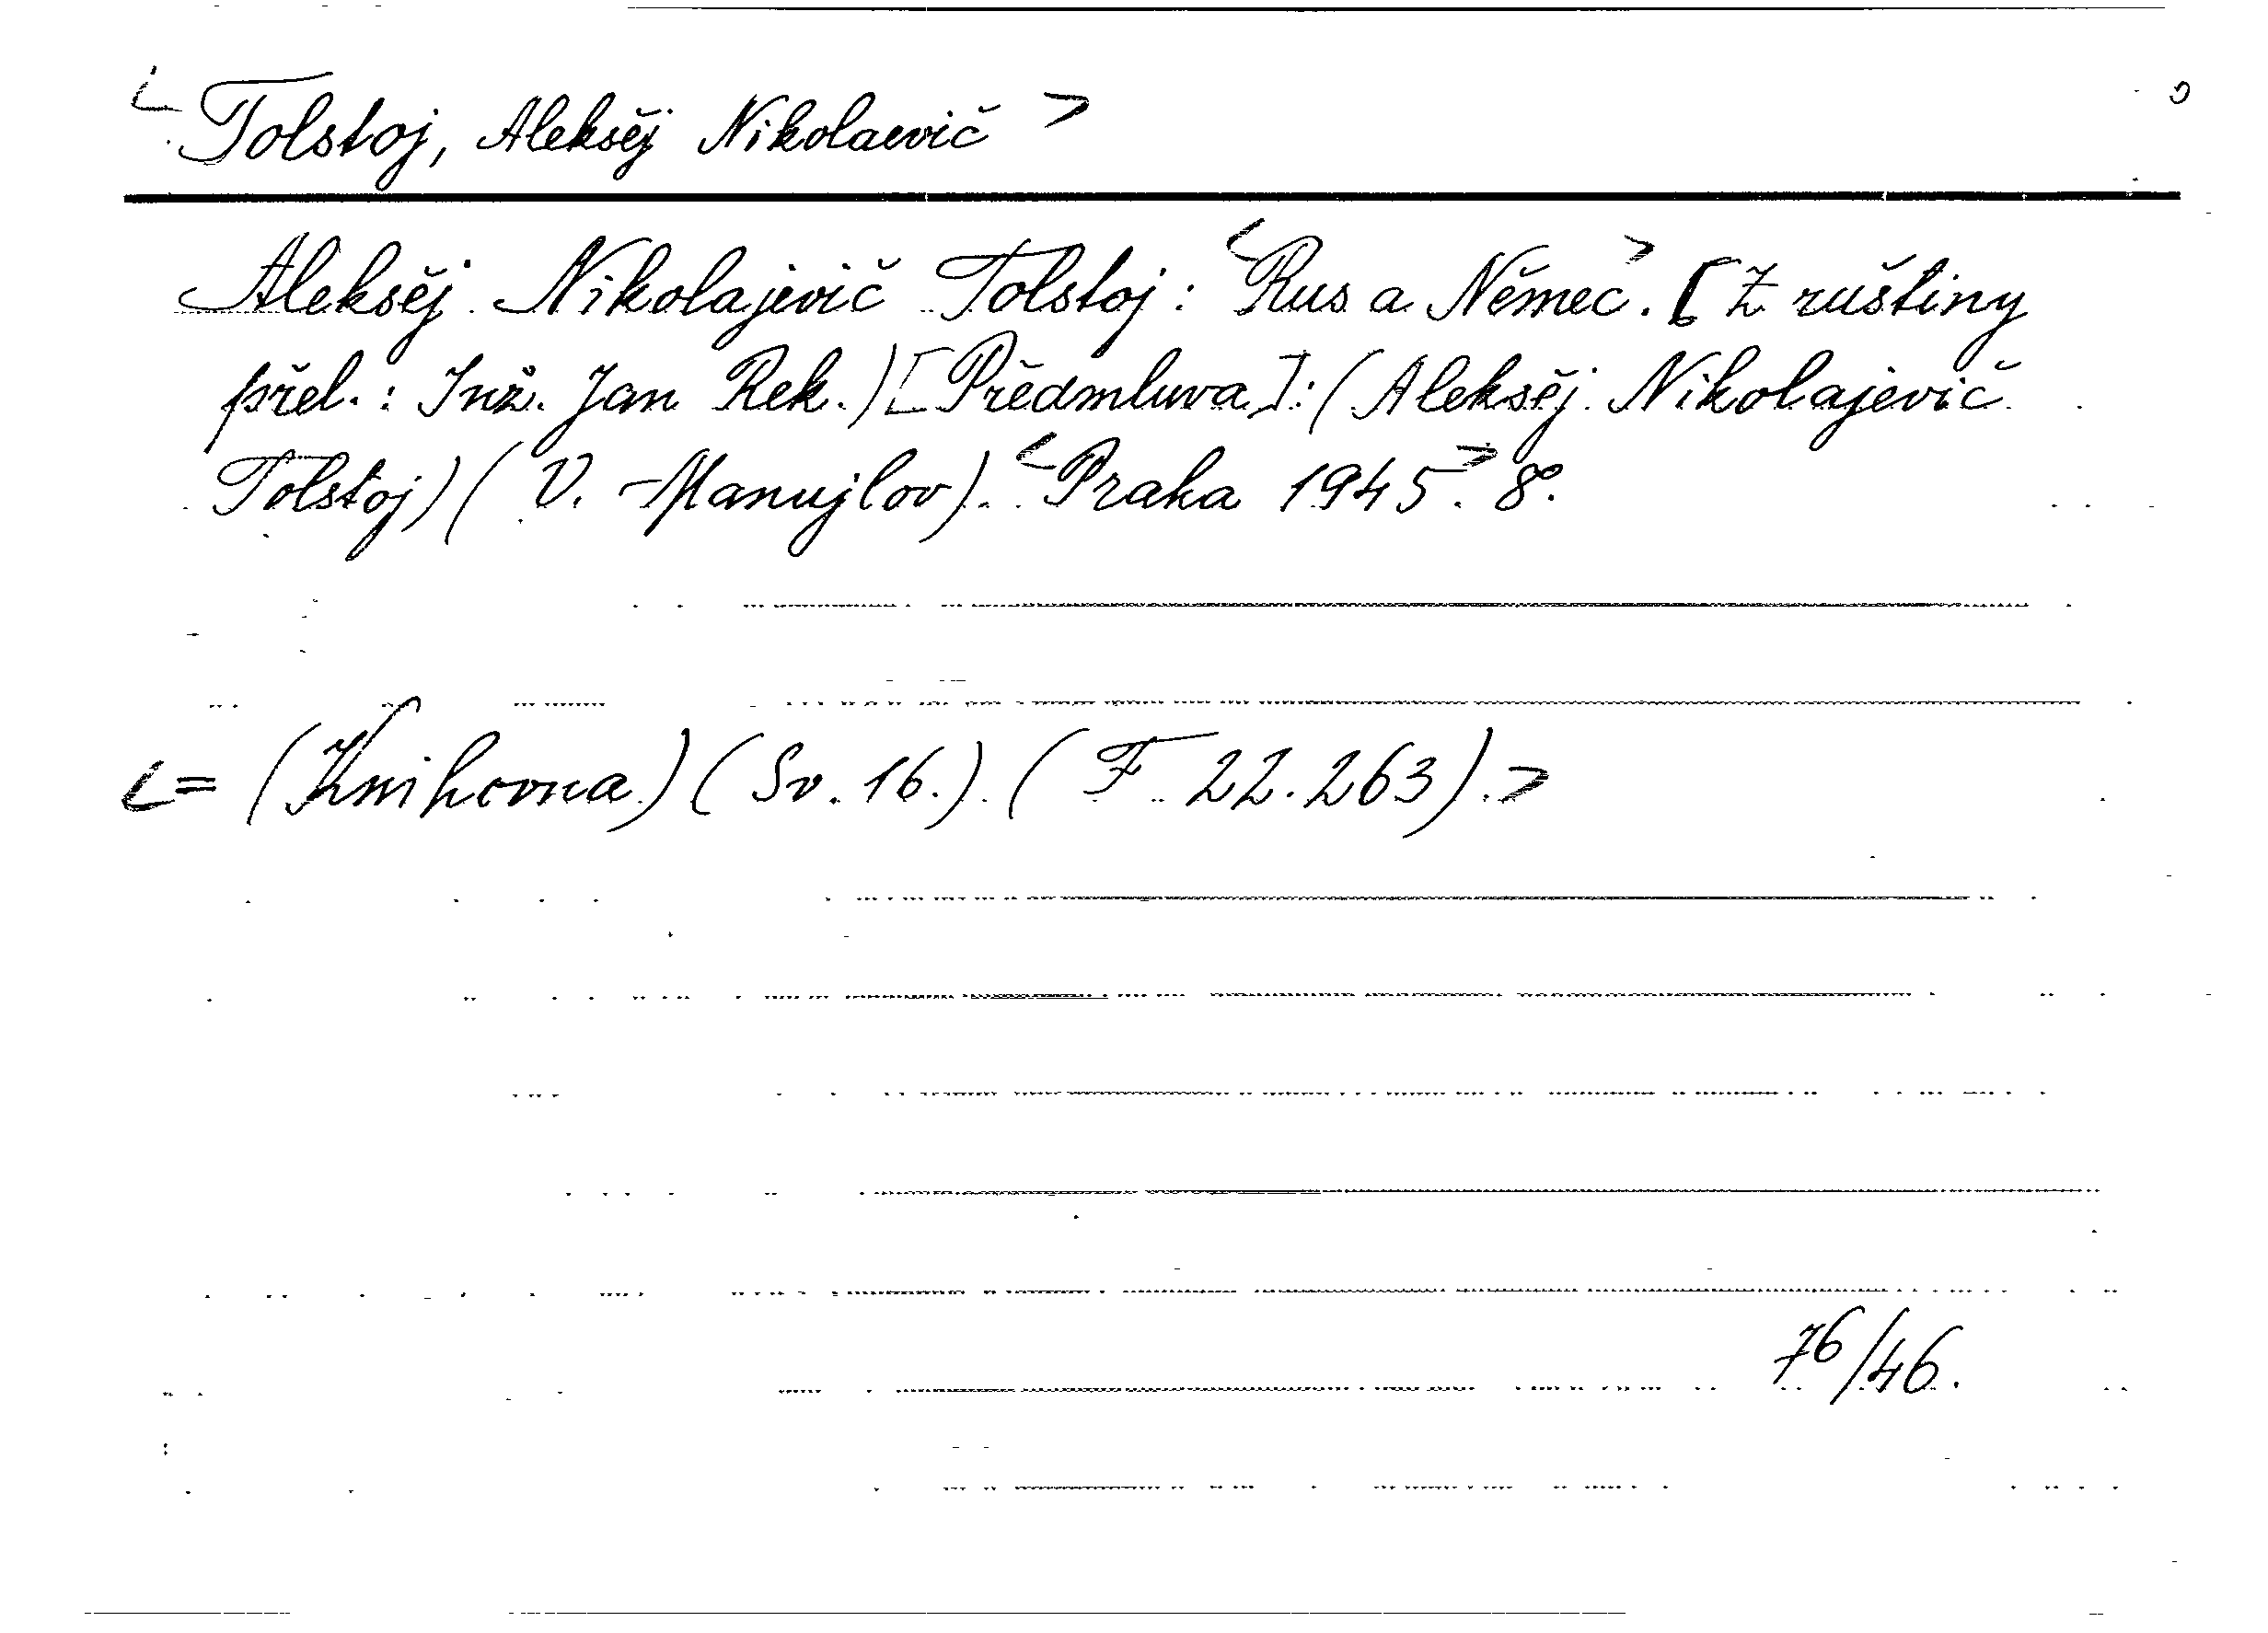 <Tolstoj, Aleksěj Nikolaevič>
Aleksěj Nikolajevič Tolstoj: <Rus a Němec>. [Z ruštiny
přel.: Inž. Jan Rek.) [Předmluva]: (Aleksěj Nikolajevič
Tolstoj) (V. Manujlov). <Praha 1945>. 8°.
<= (Knihovna) (Sv. 16.) (F 22.263).>
76/46.